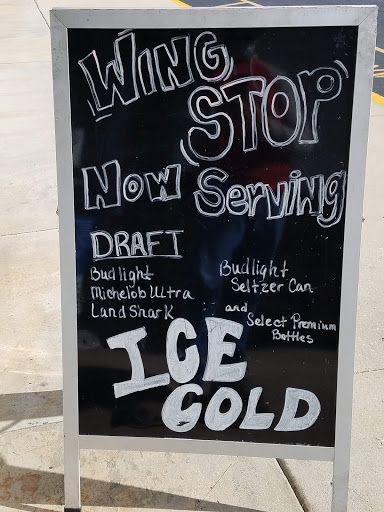 WING
STOP
Now Serving
DRAFT
Budlight
Michelob Ultra
LandShark
Budlight
Seltzer Can
and
Select Premium
Bottles
ICE
COLD